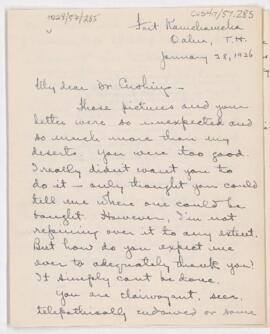 1928/57/285
CUS417/57.285
Fort Kamehameha
Oahu, T.H.
January 28, 1926
My dear Dr Cushing -
Those pictures and your
letter were so unexpected and
so much more than my
deserts. You were too good.
I really didn't want you to
do it - only thought you could
tell me where one could be
bought. However, I'm not
repining over it to any extent.
But how do you expect me
ever to adequately thank you
It simply can't be done.
You are clairvoyant, seer,
telepathically endowed or some